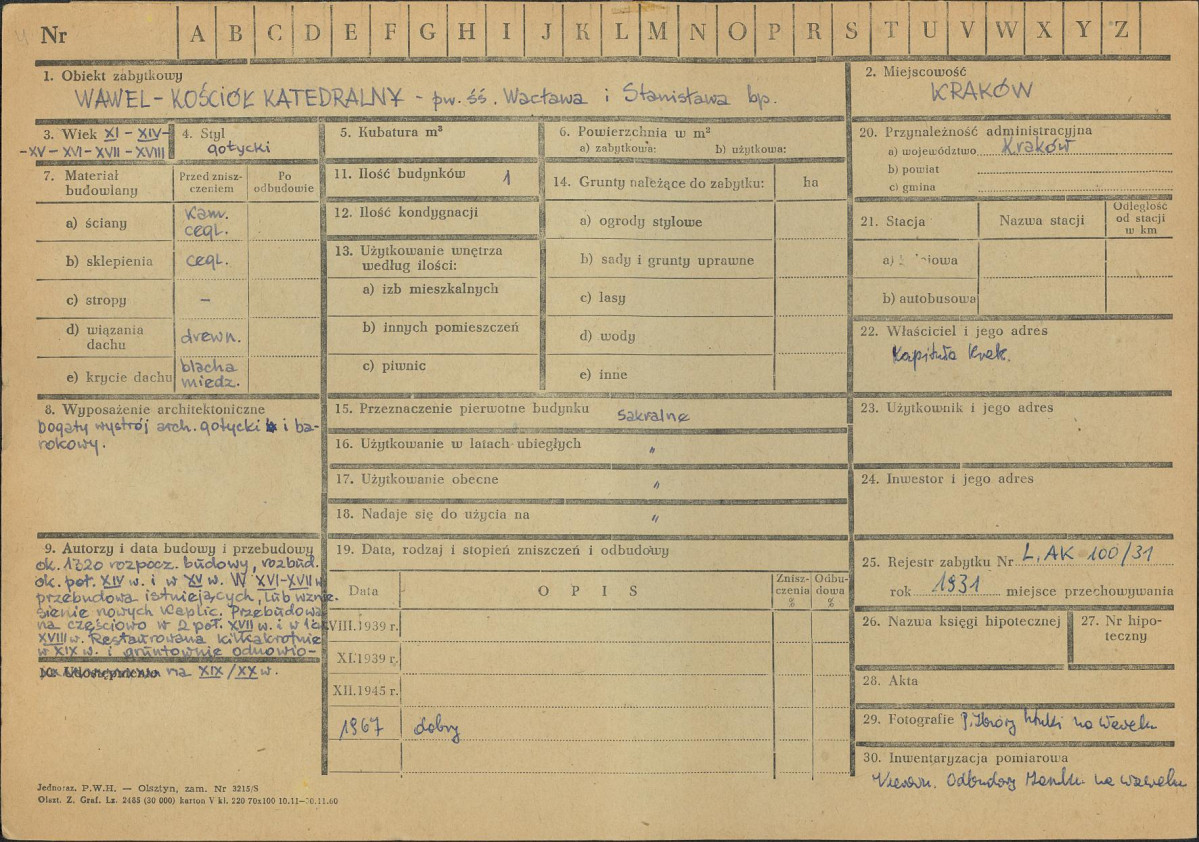 Nr A B C D E F G H I J K L M N O P R S T U V W X Y Z
1. Obiekt zabytkowy
WAWEL - KOŚCIÓŁ KATEDRALNY - pw. śś. Wacława i Stanisława bp.
2. Miejscowość
KRAKÓW
3. Wiek XI - XIV -
- XV - XVI - XVII - XVIII
4. Styl
gotycki
5. Kubatura m³
6. Powierzchnia w m²
a) zabytkowa: b) użytkowa:
7. Materiał budowlany
Przed zniszczeniem
Po odbudowie
a) ściany kam. cegl.
b) sklepienia cegl.
c) stropy -
d) wiązania dachu drewn.
e) krycie dachu blacha miedz.
8. Wyposażenie architektoniczne
bogaty wystrój arch. gotycki i ba-
rokowy.
9. Autorzy i data budowy i przebudowy
ok. 1320 rozpocz. budowy, rozbud.
ok. poł. XIV w. i w XV w. W XVI-XVII w
przebudowa istniejących, lub wznie-
sienie nowych kaplic. Przebudowa
na częściowo w 2 poł. XVII w. i w
XVIII w. Restaurowana kilkakrotnie
w XIX w. i gruntownie odnowio-
na XIX/XX w.
11. Ilość budynków 1
12. Ilość kondygnacji
13. Użytkowanie wnętrza
według ilości:
a) izb mieszkalnych
b) innych pomieszczeń
c) piwnic
14. Grunty należące do zabytku: ha
a) ogrody stylowe
b) sady i grunty uprawne
c) lasy
d) wody
e) inne
15. Przeznaczenie pierwotne budynku sakralne
16. Użytkowanie w latach ubiegłych "
17. Użytkowanie obecne "
18. Nadaje się do użycia na "
19. Data, rodzaj i stopień zniszczeń i odbudowy
Data OPIS Znisz-czenia % Odbu-dowa %
VIII.1939 r.
XI.1939 r.
XII.1945 r.
1967 dobry
20. Przynależność administracyjna
a) województwo Kraków
b) powiat
c) gmina
21. Stacja Nazwa stacji Odległość od stacji w km
a)
b) autobusowa
22. Właściciel i jego adres
Kapituła Krak.
23. Użytkownik i jego adres
24. Inwestor i jego adres
25. Rejestr zabytku Nr L.AK 100/31
rok 1931 miejsce przechowywania
26. Nazwa księgi hipotecznej
27. Nr hipo-
teczny
28. Akta
29. Fotografie P. Zbiory Sztuki na Wawelu
30. Inwentaryzacja pomiarowa
Kierown. Odbudowy Zamku na Wawelu
Jednoraz. P.W.H. — Olsztyn, zam. Nr 3215/S
Olszt. Z. Graf. Lz. 2485 (30 000) karton V kl. 220 70x100 10.11—